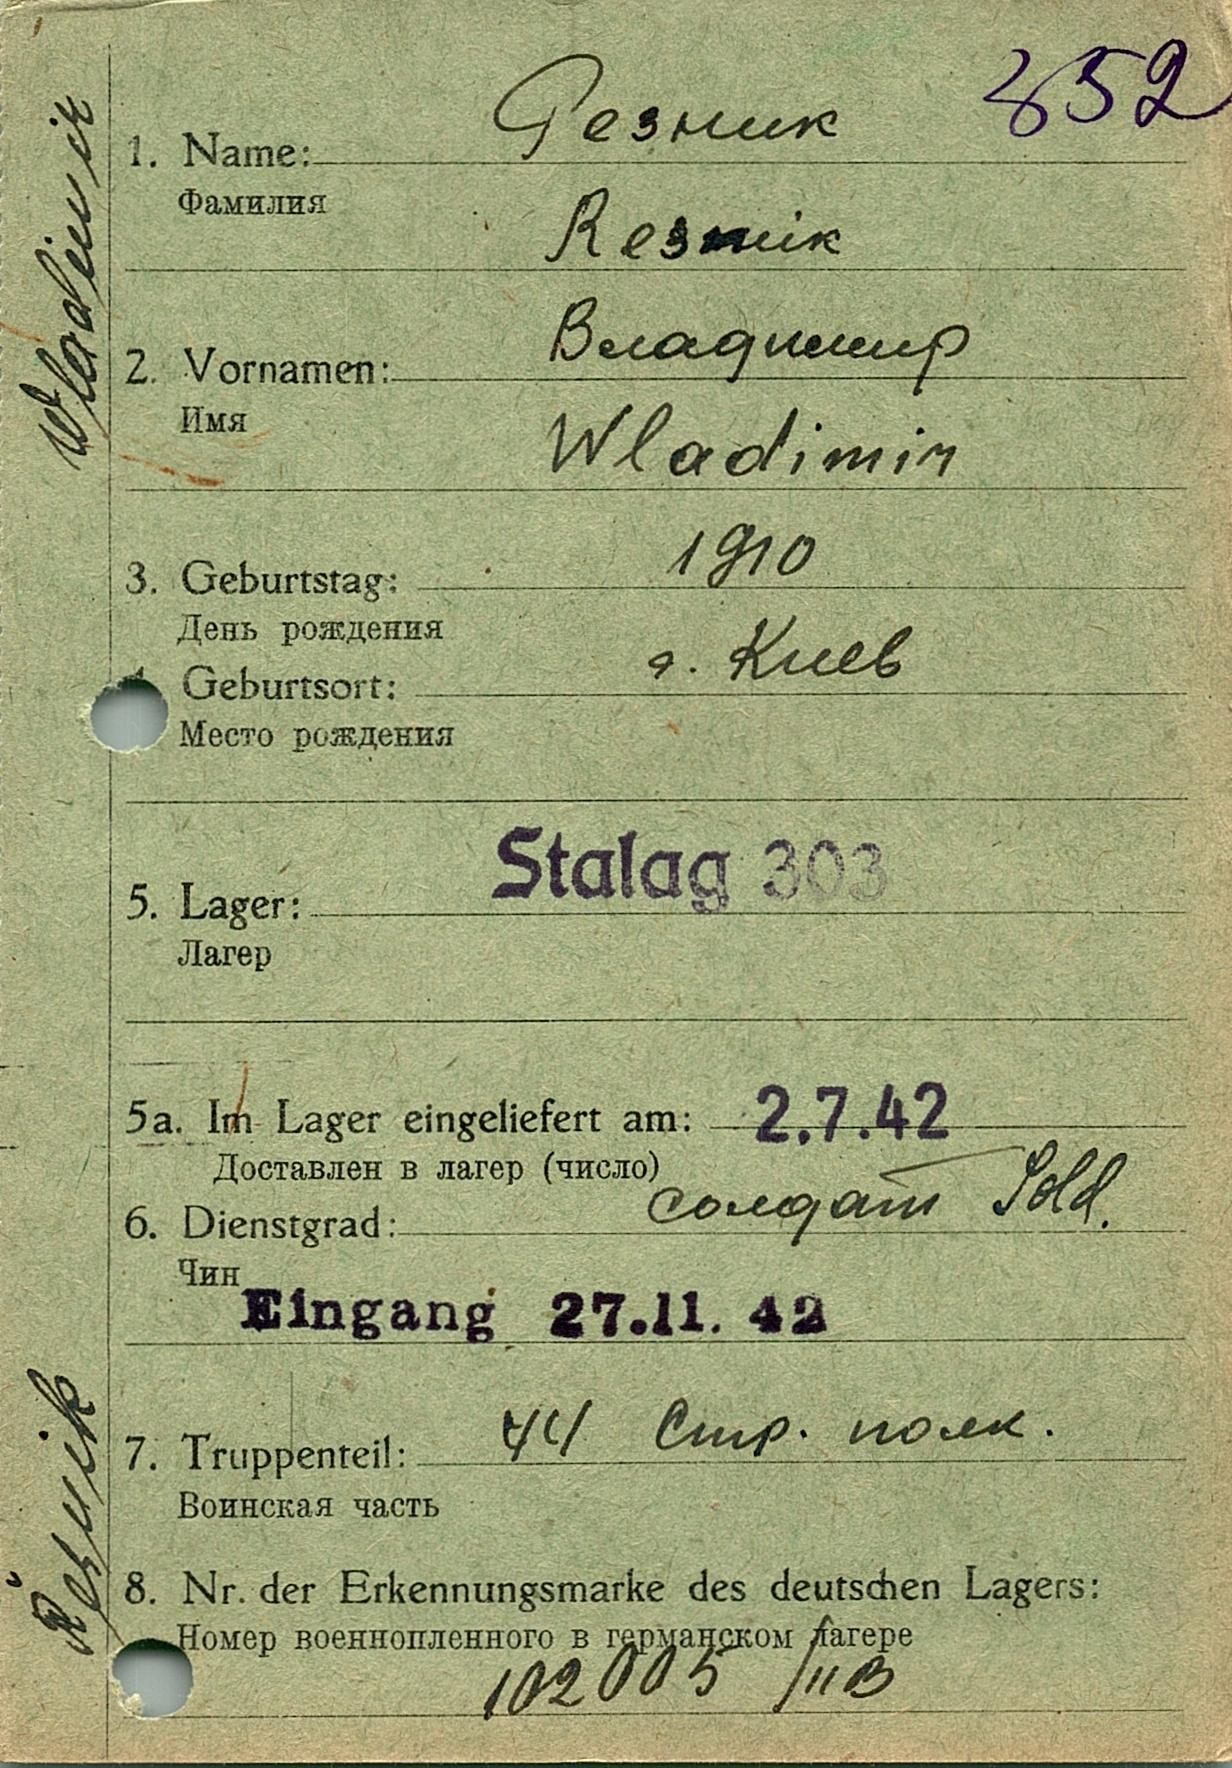 852
1. Name: Резник
Фамилия
Resnik
2. Vornamen: Владимир
Имя
Wladimir
3. Geburtstag: 1910
День рождения
Geburtsort: г. Киев
Место рождения
Stalag 303
5. Lager:
Лагер
5a. Im Lager eingeliefert am: 2.7.42
Доставлен в лагер (число)
6. Dienstgrad: солдат Sold.
Чин
Eingang 27.11.42
7. Truppenteil: 44 Стр. полк.
Воинская часть
8. Nr. der Erkennungsmarke des deutschen Lagers:
Номер военнопленного в германском лагере
102005 /II B
Resnik
Wladimir